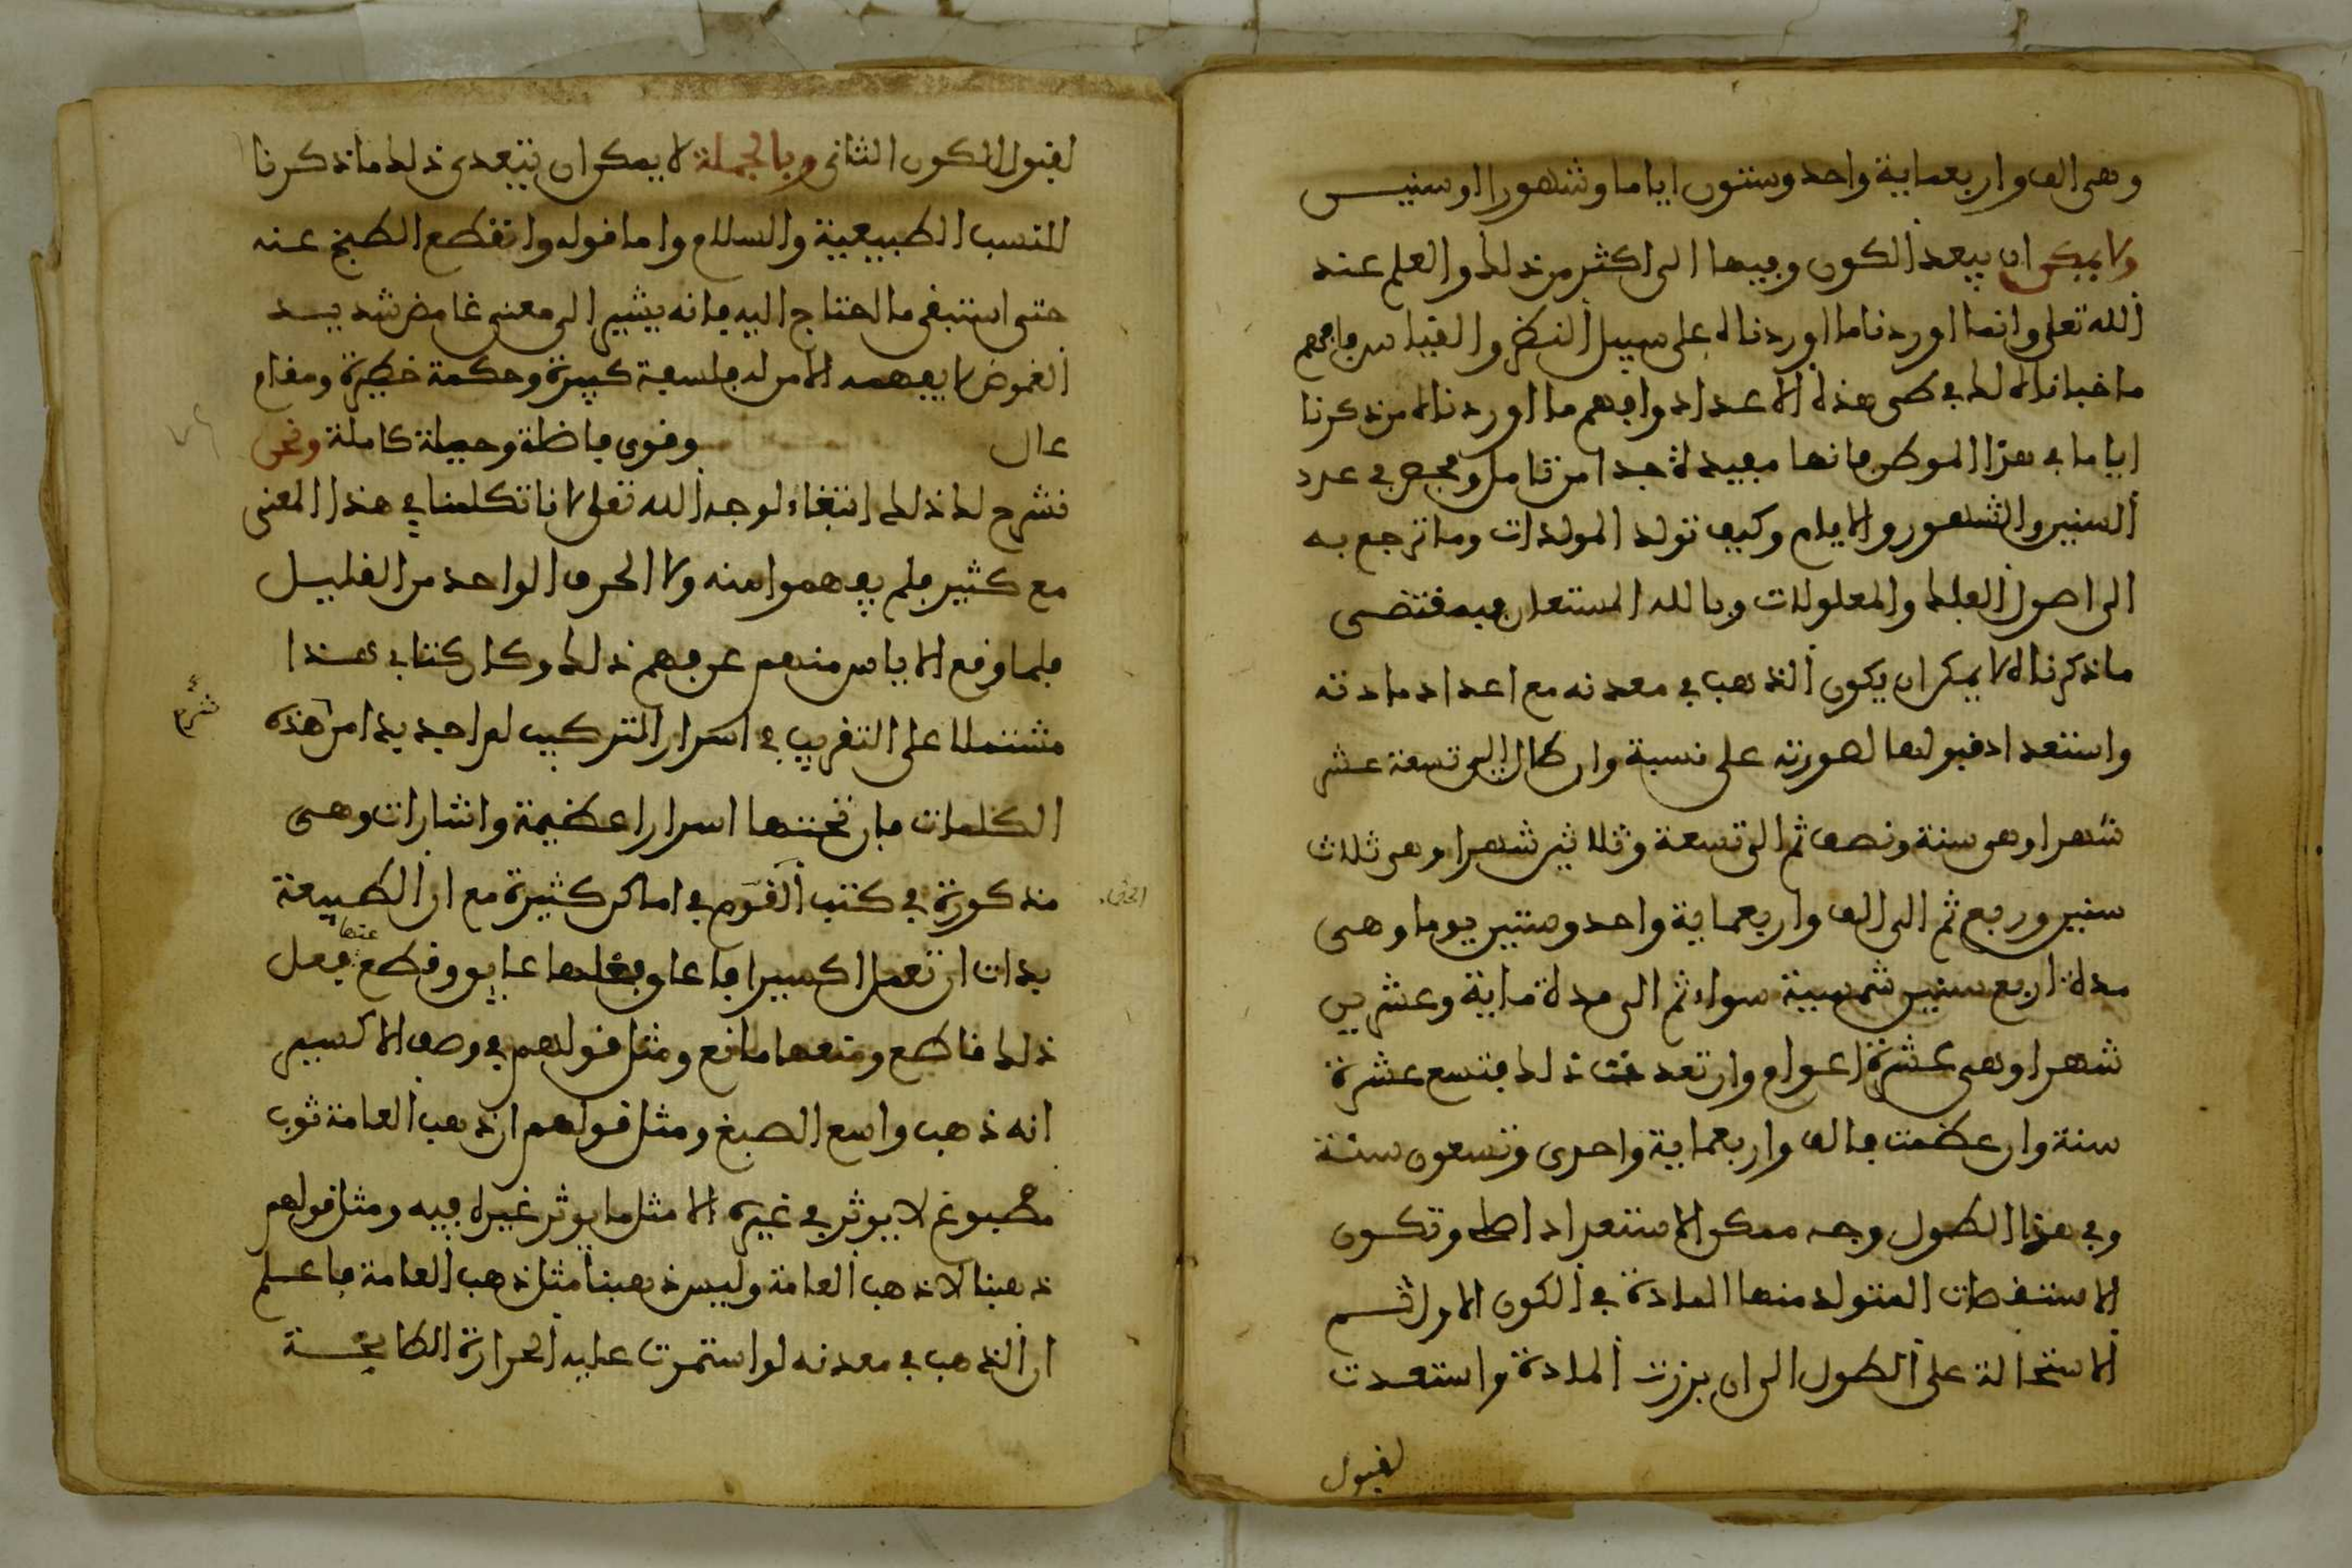 وهى الف واربعماية واحد وستون اياما وشهورا اوسنيـن
ولا يمكن ان يبعد الكون وبيها الى اكثر من ذلك والعلم عند
الله تعلى وانما اوردنا ما اوردناه على سبيل النظر والقياس فافهم
ما خباناه لك في طى هذه الاعداد وافهم ما اوردناه من ذكرنا
اياما في هذا الموطن فانها مفيدة جدا من تامل وفحص في عدد
السنين والشهور والايام وكيف تولد المولدات وما ترجع به
الى اصول العلل والمعلولات وبالله المستعان فبمقتضى
ما ذكرناه لا يمكن ان يكون الذهب في معدنه مع اعداد مادته
واستعداد قبولها لصورته على نسبة وان طال الى تسعة عشر
شهرا وهى سنة ونصف ثم الى تسعة وثلاثين شهرا وهى ثلاث
سنين وربع ثم الى الف واربعماية واحد وستين يوما وهى
مدة اربع سنين شمسية سواء ثم الى مدة ماية وعشرين
شهرا وهى عشرة اعوام وان تعدت ذلك فتسع عشرة
سنة وان عظمت فالف واربعماية واحدى وتسعون سنة
وفي هذا الطول وجه ممكن الاستعداد وتكون
الاستقصات المتولد منها المادة في الكون الاول ثم
الاستحالة على الطول الى ان برزت المادة واستعدت
لقبول
لقبول الكون الثانى وبالجملة لا يمكن ان يتعدى ذلك ما ذكرنا
للنسب الطبيعية والسلام واما قوله وانقطع الطبخ عنه
حتى استبقى ما احتاج اليه فانه يشير الى معنى غامض شديـد
الغموض لا يفهمه الا من له فلسفة كبيرة وحكمة خطيرة ومقام
عال وقوى فاضلة وحيلة كاملة ونحن
نشرح لك ذلك ابتغاء لوجه الله تعلى لانا تكلمنا في هذا المعنى
مع كثير فلم يفهموا منه ولا الحرف الواحد من القليـل
فلما وقع الاياس منهم عن فهم ذلك وكان كتابي هـذا
مشتملا على التقريب في اسرار التركيب لم اجد بدا من هذه
شرح
الكلمات فان تحتها اسرارا عظيمة واشارات وهـى
مذكورة في كتب القوم في اماكن كثيرة مع ان الطبيعة
الحق
بدات ان تعمل اكسيرا فاعا وفعلها عايق وقطع عنها فعل
ذلك قاطع ومنعها مانع ومثل قولهم في وصف الاكسير
انه ذهب واسع الصبغ ومثل قولهم ان ذهب العامة ثوب
مصبوغ لا يوثر في غيره الا مثل ما يوثر غيره فيه ومثل قولهم
ذهبنا لا ذهب العامة وليس ذهبنا مثل ذهب العامة فاعلم
ان الذهب في معدنه لو استمرت عليه الحرارة الطابخـة